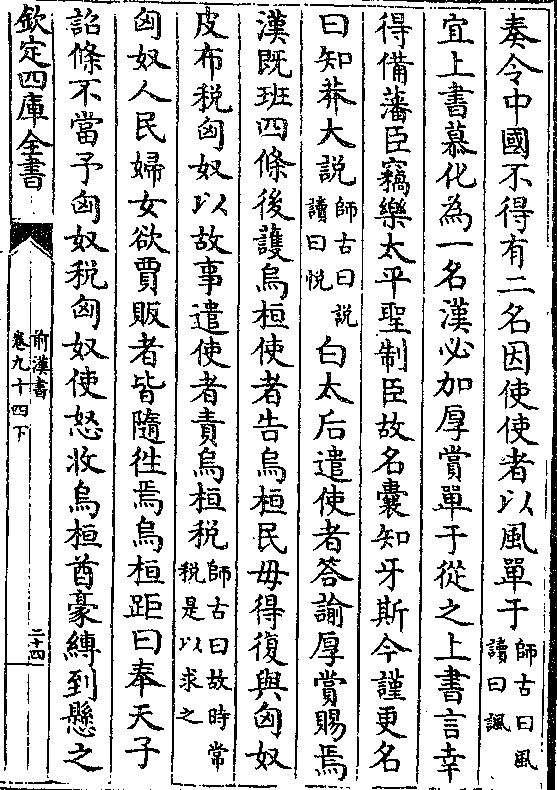 奏令中國不得有二名因使使者以風單于師古曰風讀曰諷
宜上書慕化為一名漢必加厚賞單于從之上書言幸
得備藩臣竊樂太平聖制臣故名囊知牙斯今謹更名
曰知莽大說師古曰說讀曰悅白太后遣使者答諭厚賞賜焉
漢既班四條後護烏桓使者告烏桓民毋得復與匈奴
皮布税匈奴以故事遣使者責烏桓税師古曰故時常税是以求之
匈奴人民婦女欲賈販者皆隨徃焉烏桓距曰奉天子
詔條不當予匈奴税匈奴使怒收烏桓酋豪縛到懸之
欽定四庫全書
前漢書
卷九十四下
二十四